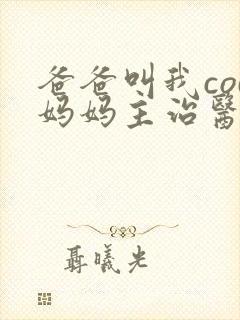 爸爸叫我co
妈妈主治醫
聶曦光